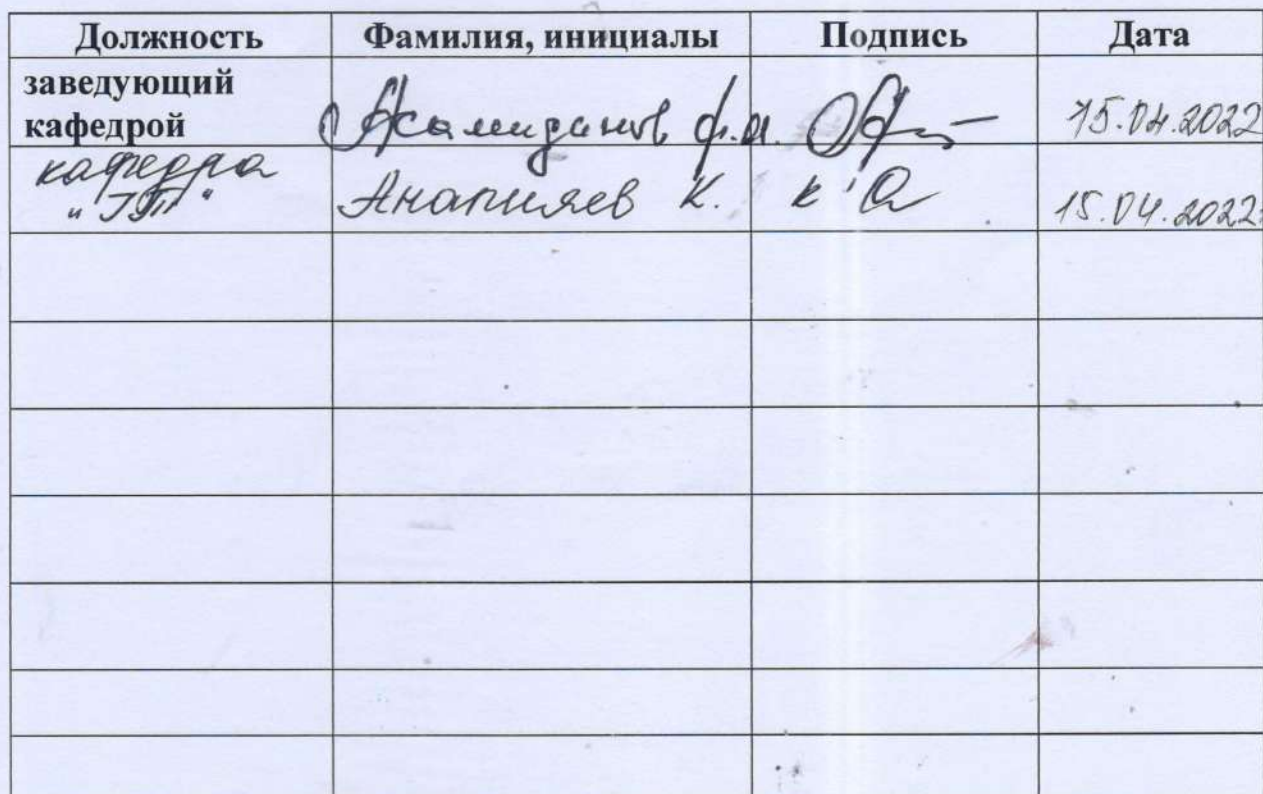 Должность Фамилия, инициалы Подпись Дата
заведующий
кафедрой ф.а. 15.04.2022
кафедра
Анапияев К. 15.04.2022